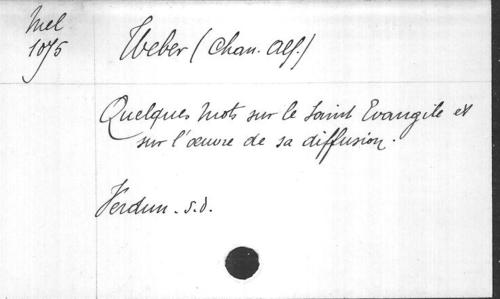 Mel
1075
Weber (Chan. Alf.)
Quelques mots sur le Saint Evangile et
sur l'œuvre de sa diffusion.
Verdun. s.d.